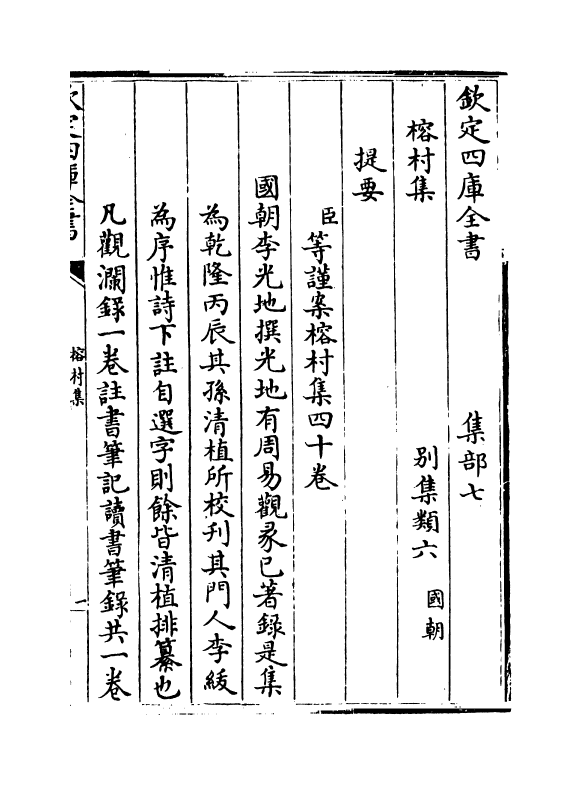 欽定四庫全書　集部七
榕村集　別集類六國朝
提要
臣等謹案榕村集四十卷
國朝李光地撰光地有周易觀彖已著錄是集
為乾隆丙辰其孫清植所校刋其門人李紱
為序惟詩下註自選字則餘皆清植排纂也
凡觀瀾錄一卷註書筆記讀書筆錄共一卷
欽定四庫全書
榕村集
一